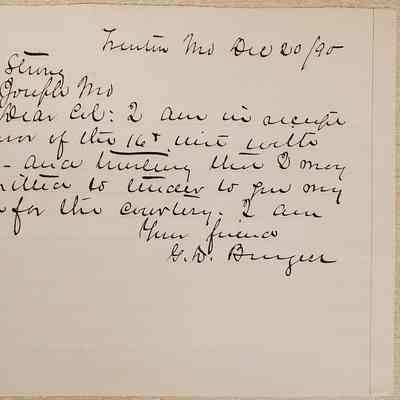 Trenton Mo Dec 20/90
Strong
Joseph Mo
Dear Col: I am in receipt
vor of the 16th inst with
- and trusting that I may
mitted to tender to you my
for the courtesy. I am
Your friend
G. D. Burgess